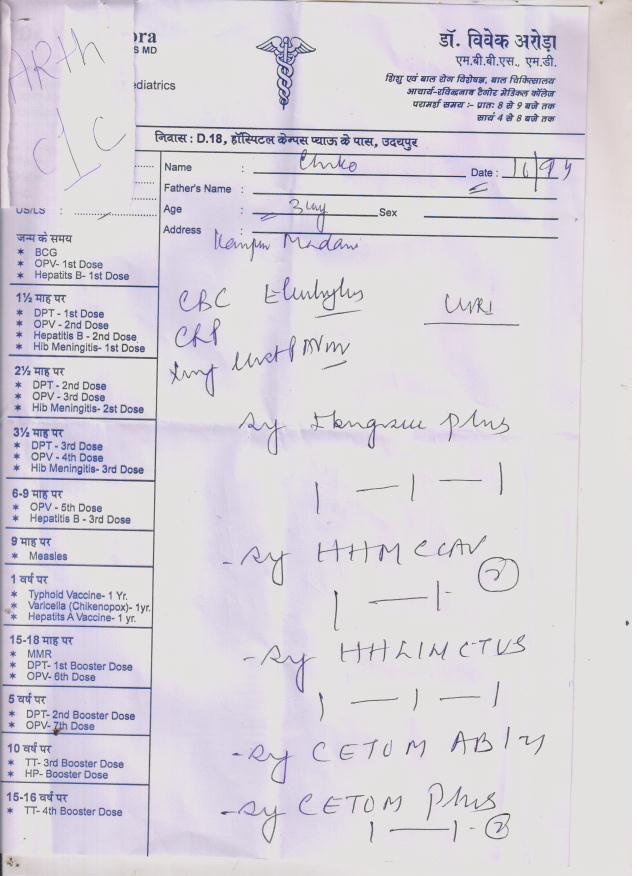 ARth
c/c
ora
S MD
ediatrics
डॉ. विवेक अरोड़ा
एम.बी.बी.एस., एम.डी.
शिशु एवं बाल रोग विशेषज्ञ, बाल चिकित्सालय
आचार्य-रविन्द्रनाथ टैगोर मेडिकल कॉलेज
परामर्श समय :- प्रातः 8 से 9 बजे तक
सायं 4 से 8 बजे तक
निवास : D.18, हॉस्पिटल केम्पस प्याऊ के पास, उदयपुर
Name :
Date :
Father's Name :
US/LS :
Age : Sex
Address :
जन्म के समय
* BCG
* OPV- 1st Dose
* Hepatits B- 1st Dose
1½ माह पर
* DPT - 1st Dose
* OPV - 2nd Dose
* Hepatitis B - 2nd Dose
* Hib Meningitis- 1st Dose
2½ माह पर
* DPT - 2nd Dose
* OPV - 3rd Dose
* Hib Meningitis- 2st Dose
3½ माह पर
* DPT - 3rd Dose
* OPV - 4th Dose
* Hib Meningitis- 3rd Dose
6-9 माह पर
* OPV - 5th Dose
* Hepatitis B - 3rd Dose
9 माह पर
* Measles
1 वर्ष पर
* Typhoid Vaccine- 1 Yr.
* Varicella (Chikenopox)- 1yr.
* Hepatits A Vaccine- 1 yr.
15-18 माह पर
* MMR
* DPT- 1st Booster Dose
* OPV- 6th Dose
5 वर्ष पर
* DPT- 2nd Booster Dose
* OPV- 7th Dose
10 वर्ष पर
* TT- 3rd Booster Dose
* HP- Booster Dose
15-16 वर्ष पर
* TT- 4th Booster Dose
CBC
CRP
Sy plus
1 — 1 — 1
- Sy HHM CLAV
1 — 1 - 2
- Sy HHLINCTUS
1 — 1 — 1
- Sy CETOM
- Sy CETOM Plus
1 — 1 - 2